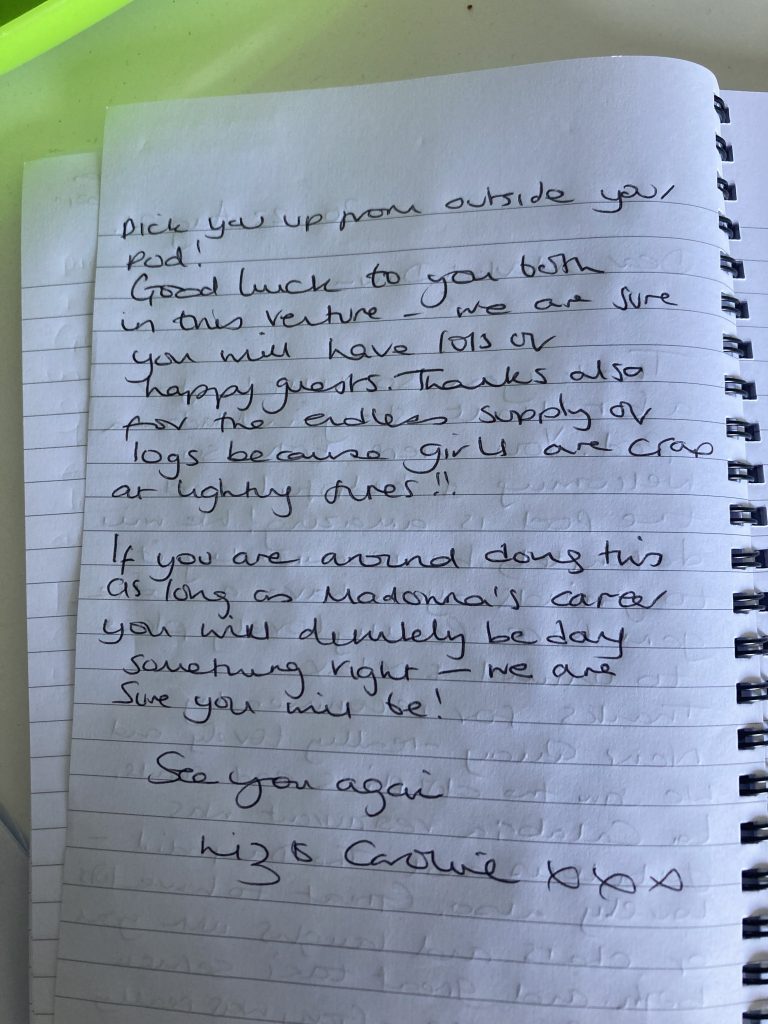 pick you up from outside your
Pod!
Good luck to you both
in this venture - we are sure
you will have lots of
happy guests. Thanks also
for the endless supply of
logs because girls are crap
at lighting fires!!
If you are around doing this
as long as Madonna's career
you will definitely be doing
something right - we are
sure you will be!
See you again
Liz & Caroline xxx